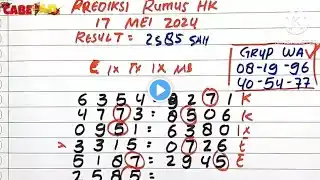 CABE
PREDIKSI RUMUS HK
17 MEI 2024
RESULT = 2585 SAH
GRUP WA
08-19-96
40-54-77
£ 1X TX 1X MB
6 3 5 4 : 9 2 7 1 K
4 7 7 3 : 8 5 0 6 K
0 9 5 1 : 6 3 8 0 1X
> 3 3 1 5 : 0 7 2 6 £
5 1 8 7 : 2 9 4 5 £
2 5 8 5 =